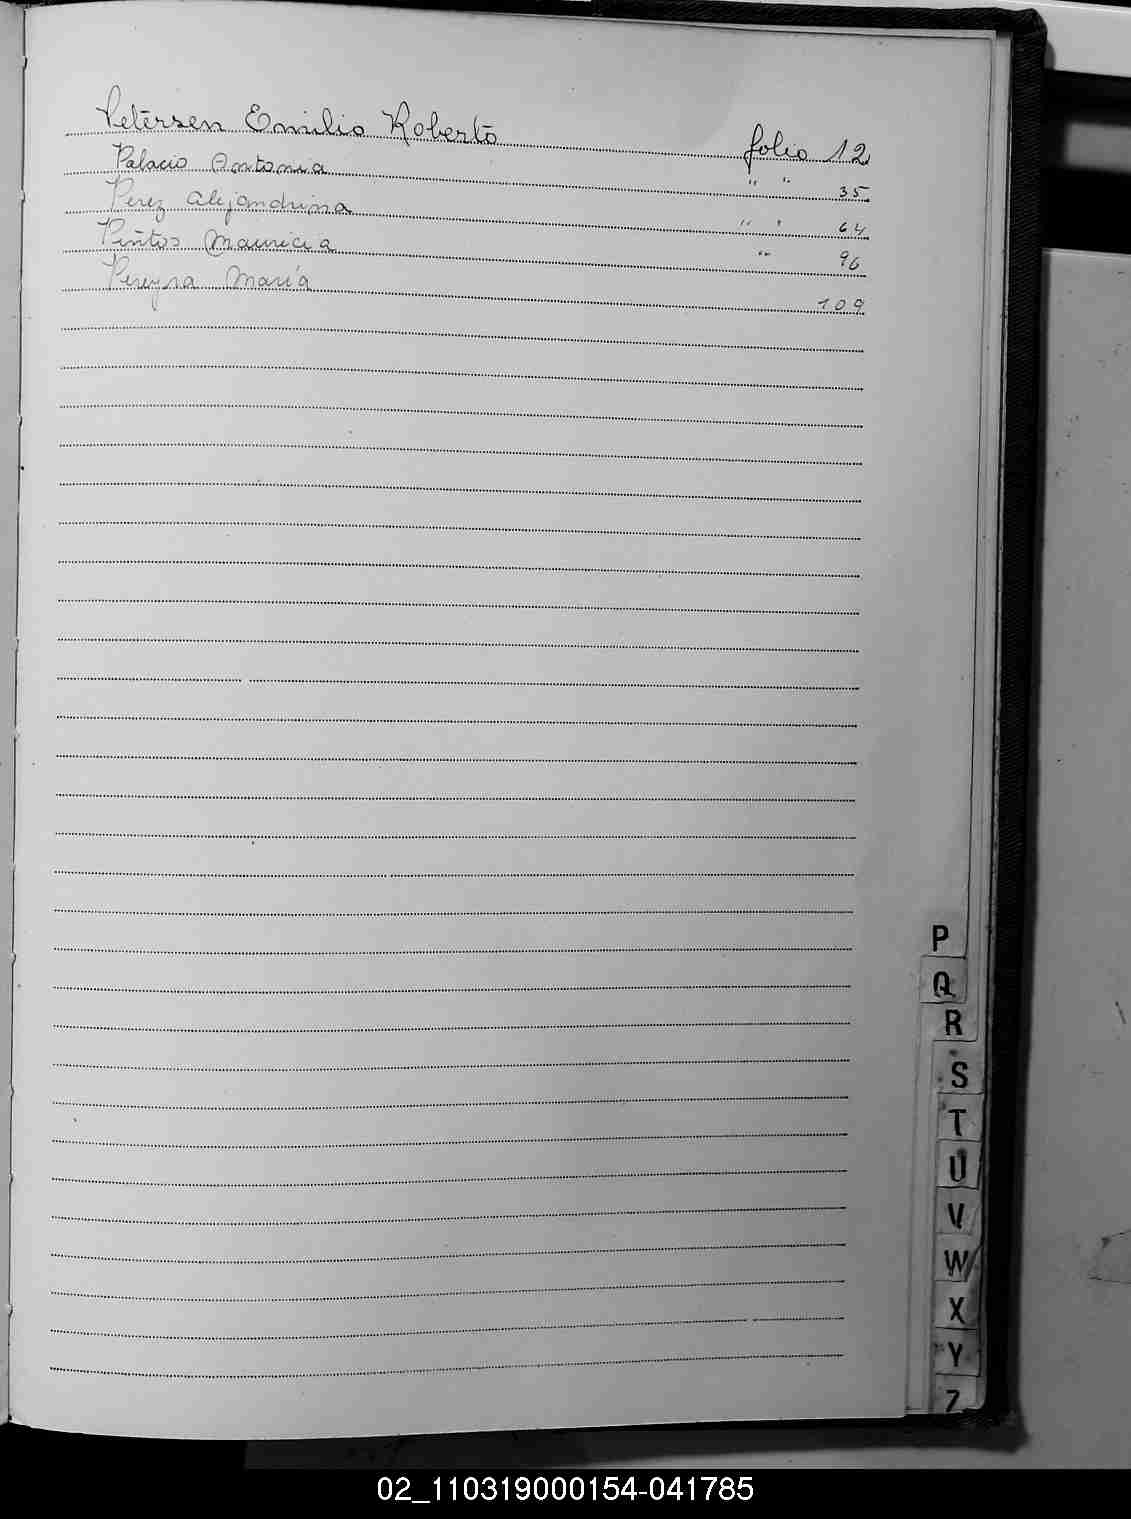 Petersen Emilio Roberto folio 12
Palacio Antonia " " 35
Perez Alejandrina " " 64
Pintos Mauricia " 96
Pereyra María 109
P
Q
R
S
T
U
V
W
X
Y
Z
02_110319000154-041785